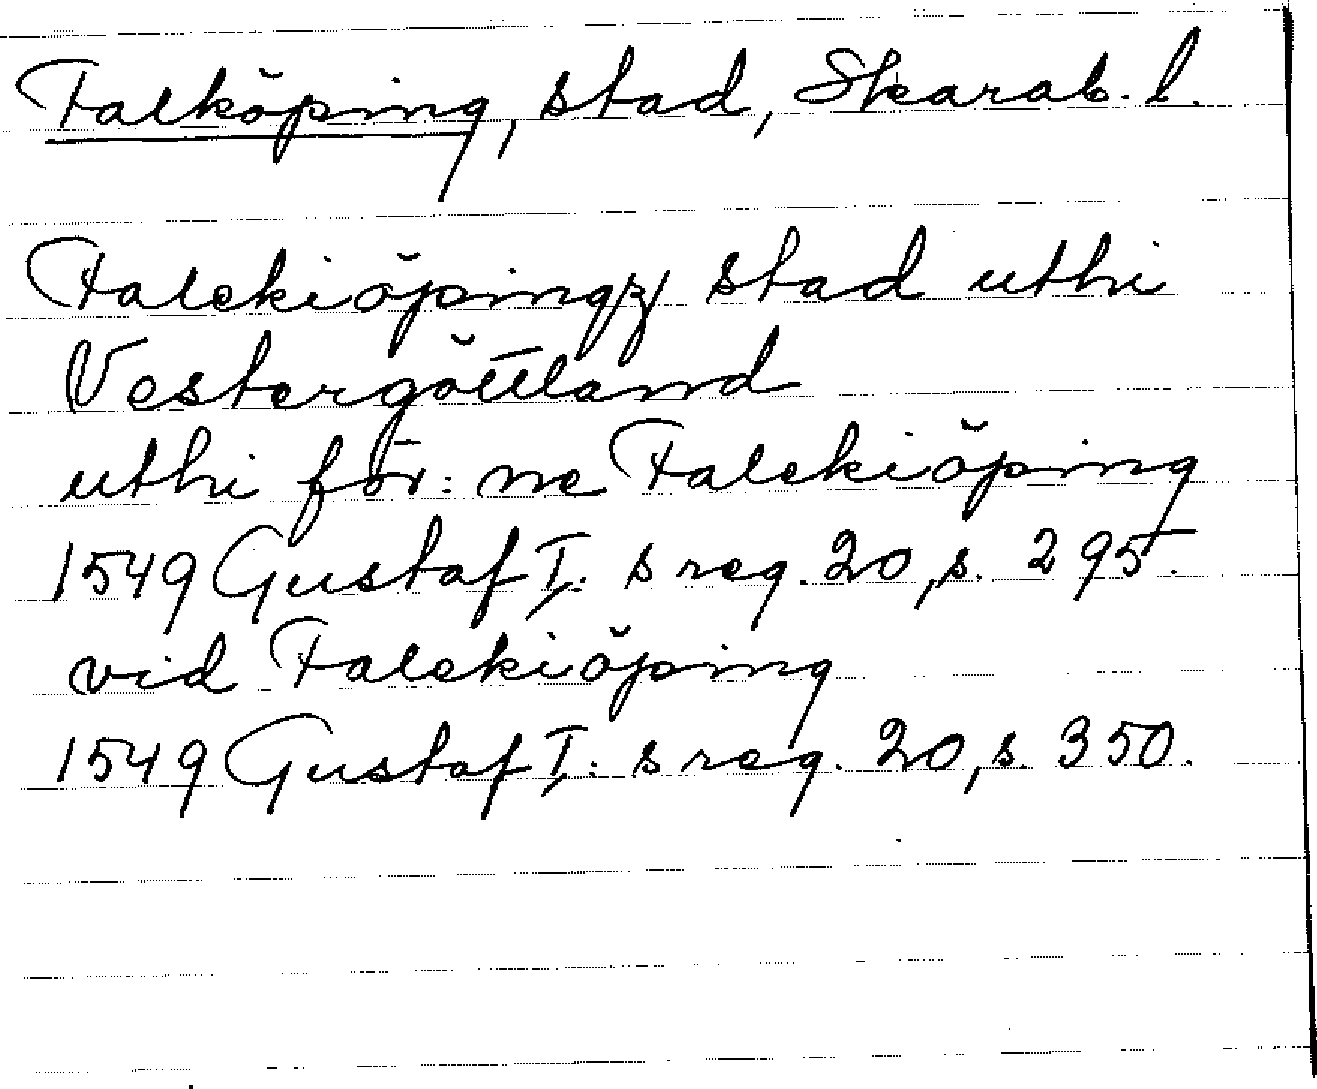 Falköping, stad, Skarab. l.
Falekiöpingz stad uthi
Vestergöttland
uthi för: ne Falekiöping
1549 Gustaf I: s reg. 20, s. 295.
vid Falekiöping
1549 Gustaf I: s reg. 20, s. 350.